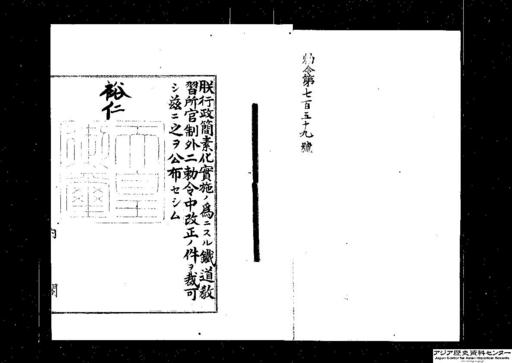 勅令第七百五十九號
朕行政簡素化實施ノ爲ニスル鐵道敎
習所官制外二勅令中改正ノ件ヲ裁可
シ茲ニ之ヲ公布セシム
裕仁
天皇御璽
内閣
アジア歴史資料センター
Japan Center for Asian Historical Records